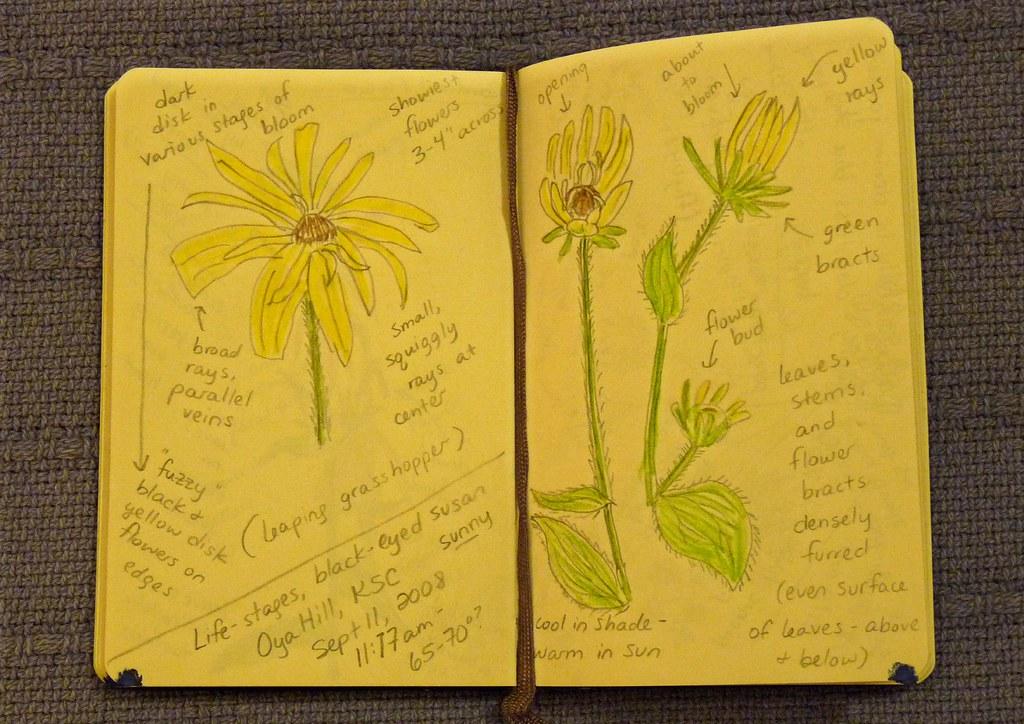 dark
disk in
various stages of
bloom
showiest
flowers
3-4" across
broad
rays,
parallel
veins
small,
squiggly
rays at
center
"fuzzy"
black +
yellow disk
flowers on
edges
(leaping grasshopper)
Life-stages, black-eyed susan
Oya Hill, KSC
sunny
Sept 11, 2008
11:17am-
65-70°?
opening
about
to
bloom
yellow
rays
green
bracts
flower
bud
leaves,
stems,
and
flower
bracts
densely
furred
(even surface
of leaves - above
+ below)
cool in shade-
warm in sun